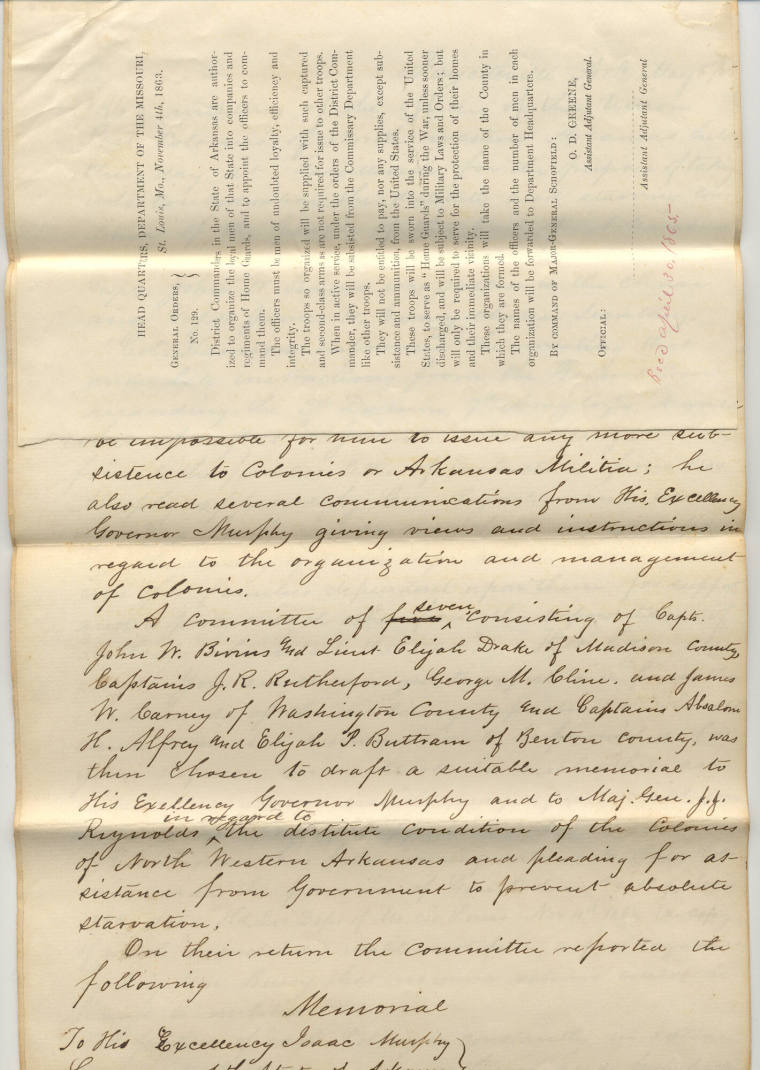 HEAD QUARTERS, DEPARTMENT OF THE MISSOURI,
St. Louis, Mo., November 4th, 1863.
GENERAL ORDERS, }
No. 129.
District Commanders in the State of Arkansas are author-
ized to organize the loyal men of that State into companies and
regiments of Home Guards, and to appoint the officers to com-
mand them.
The officers must be men of undoubted loyalty, efficiency and
integrity.
The troops so organized will be supplied with such captured
and second-class arms as are not required for issue to other troops.
When in active service, under the orders of the District Com-
mander, they will be subsisted from the Commissary Department
like other troops.
They will not be entitled to pay, nor any supplies, except sub-
sistence and ammunition, from the United States.
These troops will be sworn into the service of the United
States, to serve as "Home Guards" during the War, unless sooner
discharged, and will be subject to Military Laws and Orders; but
will only be required to serve for the protection of their homes
and their immediate vicinity.
These organizations will take the name of the County in
which they are formed.
The names of the officers and the number of men in each
organization will be forwarded to Department Headquarters.
BY COMMAND OF MAJOR-GENERAL SCHOFIELD:
O. D. GREENE,
Assistant Adjutant General.
OFFICIAL:
Assistant Adjutant General
Recd April 30, 1865
be impossible for him to issue any more sub-
sistence to Colonies or Arkansas Militia; he
also read several communications from His, Excellency
Governor Murphy giving views and instructions in
regard to the organization and management
of colonies.
A committee of seven consisting of Capts.
John W. Bivins and Lieut Elijah Drake of Madison County,
Captains J. R. Rutherford, George M. Cline. and James
W. Carney of Washington County and Captains Absalom
H. Alfrey and Elijah P. Buttram of Benton county, was
then chosen to draft a suitable memorial to
His Exellency Governor Murphy and to Maj. Gen. J. J.
Reynolds in regard to the distitute condition of the Colonies
of North Western Arkansas and pleading for as-
sistance from Government to prevent absolute
starvation.
On their return the committee reported the
following
Memorial
To His Excellency Isaac Murphy }